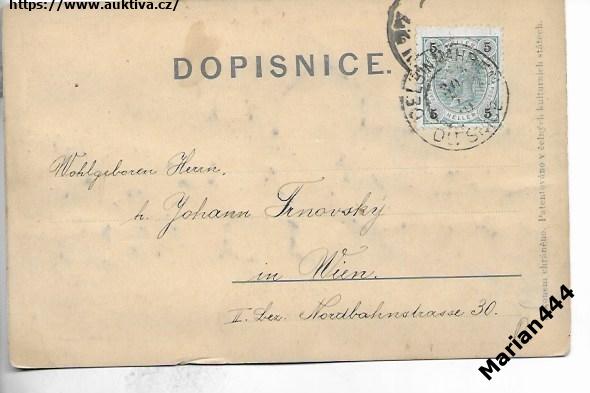 https://www.auktiva.cz/
DOPISNICE.
5 5
HELLER
5 5
Wohlgeboren Herrn,
h. Johann Trnovský
in Wien.
II. Bez. Nordbahnstrasse 30.
chráněno. Patentováno v četných kulturních státech.
Marian444